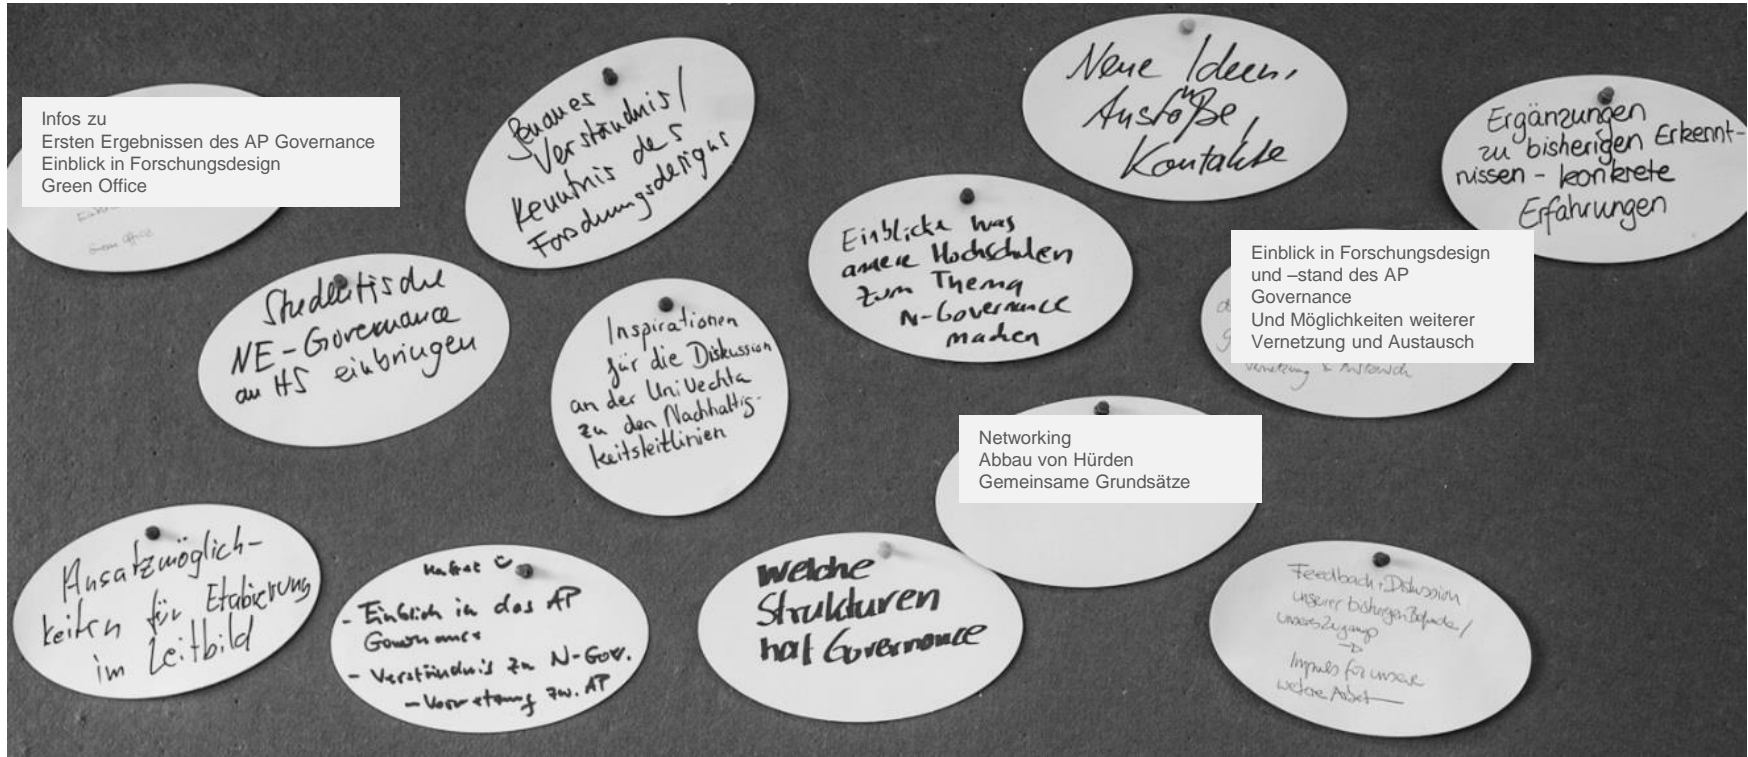 Infos zu
Ersten Ergebnissen des AP Governance
Einblick in Forschungsdesign
Green Office
Green Office
genaues
Verständnis/
Kenntnis des
Forschungsdesigns
Neue Ideen,
Anstöße,
Kontakte
Ergänzungen
zu bisherigen Erkennt-
nissen - konkrete
Erfahrungen
Studentische
NE-Governance
an HS einbringen
Inspirationen
für die Diskussion
an der Uni Vechta
zu den Nachhaltig-
keitsleitlinien
Einblicke was
andere Hochschulen
zum Thema
N-Governance
machen
Einblick in Forschungsdesign
und –stand des AP
Governance
Und Möglichkeiten weiterer
Vernetzung und Austausch
Vernetzung & Austausch
Networking
Abbau von Hürden
Gemeinsame Grundsätze
Ansatzmöglich-
keiten für Etablierung
im Leitbild
- Einblick in das AP
Governance
- Verständnis zu N-Gov.
- Vernetzung zw. AP
welche
Strukturen
hat Governance
Feedback + Diskussion
unserer bisherigen Befunde/
unseres Zugangs
→
Impuls für unsere
weitere Arbeit